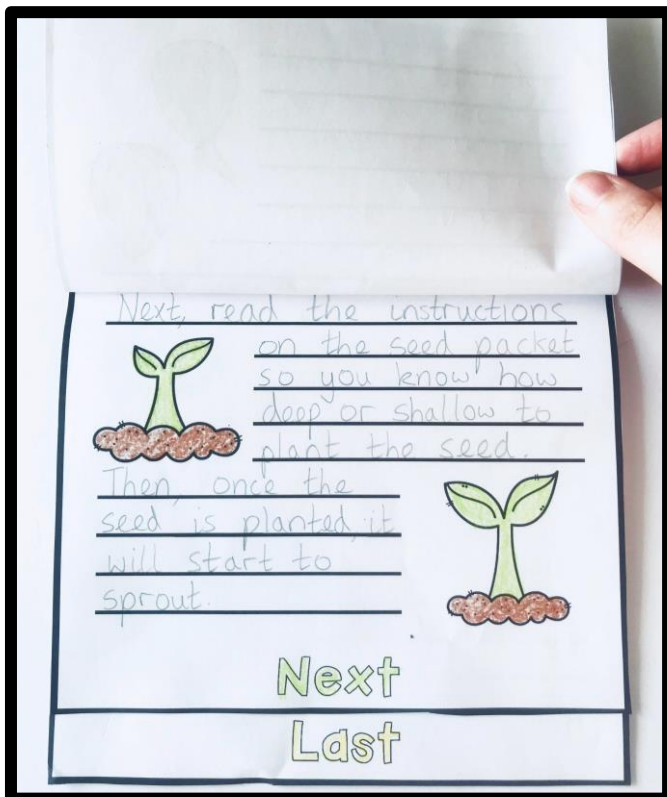 Next, read the instructions
on the seed packet
so you know how
deep or shallow to
plant the seed.
Then, once the
seed is planted, it
will start to
sprout.
Next
Last